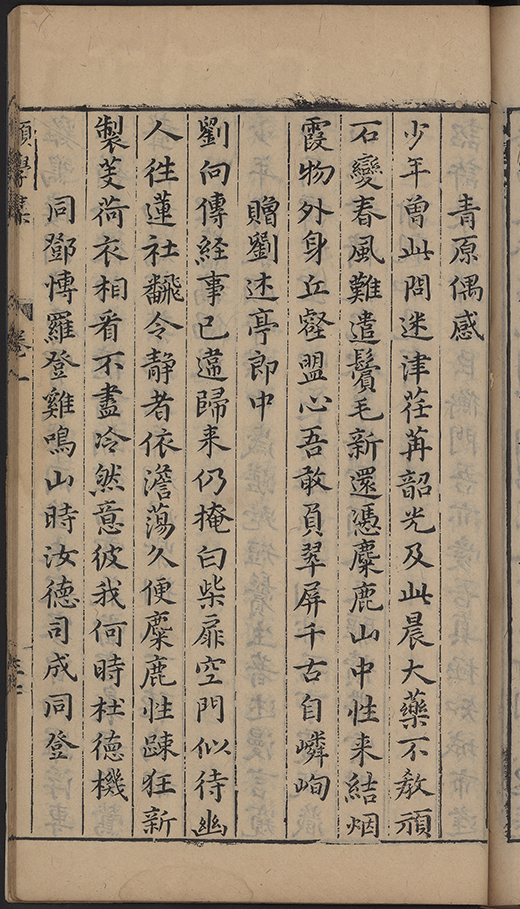 青原偶感
少年曾此問迷津荏苒韶光及此晨大藥不教頑
石變春風難遣鬢毛新還憑麋鹿山中性来結烟
霞物外身丘壑盟心吾敢負翠屏千古自嶙峋
贈劉述亭郎中
劉向傳経事已違歸来仍掩白柴扉空門似待幽
人徃蓮社飜令静者依澹蕩久便麋鹿性踈狂新
製芰荷衣相看不盡冷然意彼我何時杜德機
同鄧慱羅登雞鳴山時汝德司成同登
卷一